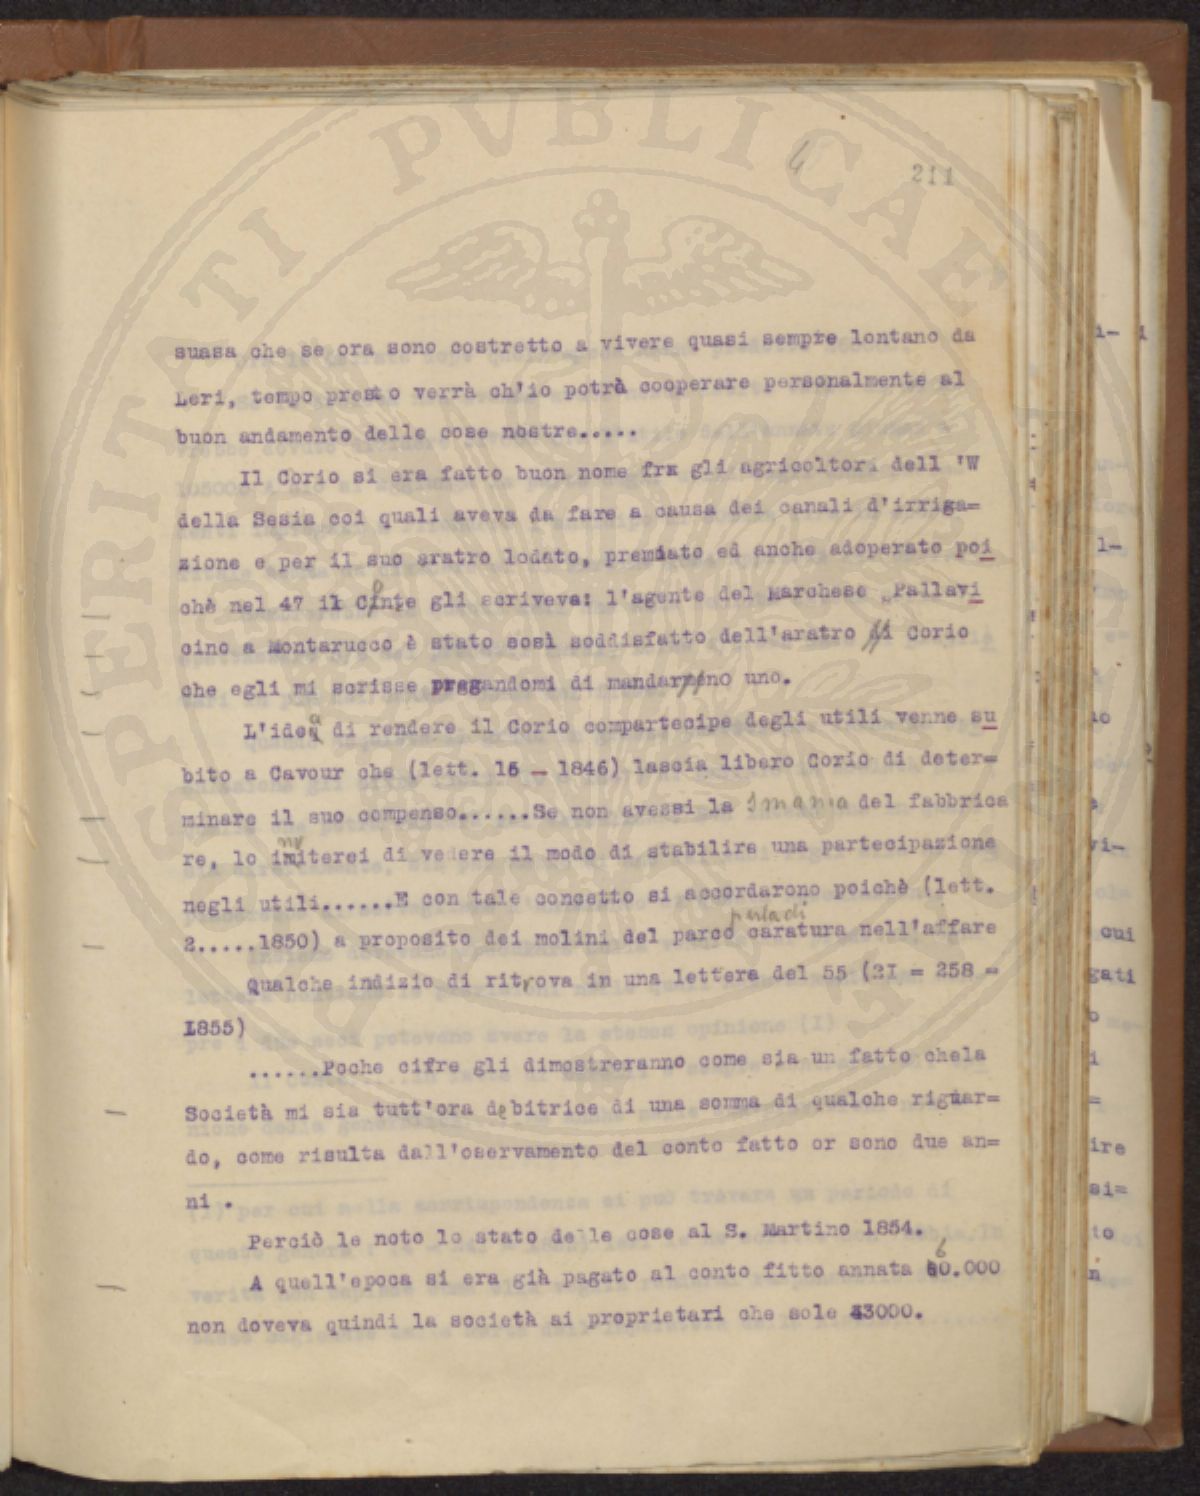 PERITATI PVBLICAE
4
211
suasa che se ora sono costretto a vivere quasi sempre lontano da
Leri, tempo presto verrà ch'io potrò cooperare personalmente al
buon andamento delle cose nostre.....
Il Corio si era fatto buon nome fra gli agricoltori dell 'W
della Sesia coi quali aveva da fare a causa dei canali d'irriga=
zione e per il suo aratro lodato, premiato ed anche adoperato poi
chè nel 47 il Conte gli scriveva: l'agente del Marchese „Pallavi
cino a Montarucco è stato sosì soddisfatto dell'aratro di Corio
che egli mi scrisse pregandomi di mandarneno uno.
L'idea di rendere il Corio compartecipe degli utili venne su
bito a Cavour che (lett. 15 - 1846) lascia libero Corio di deter=
minare il suo compenso......Se non avessi la smania del fabbrica
re, lo inviterei di vedere il modo di stabilire una partecipazione
negli utili......E con tale concetto si accordarono poichè (lett.
2.....1850) a proposito dei molini del parco parla di caratura nell'affare
Qualche indizio di ritrova in una lettera del 55 (2I = 258 =
1855)
......Poche cifre gli dimostreranno come sia un fatto chela
Società mi sia tutt'ora debitrice di una somma di qualche riguar=
do, come risulta dall'oservamento del conto fatto or sono due an=
ni .
Perciò le noto lo stato delle cose al S. Martino 1854.
A quell'epoca si era già pagato al conto fitto annata 60.000
non doveva quindi la società ai proprietari che sole 43000.